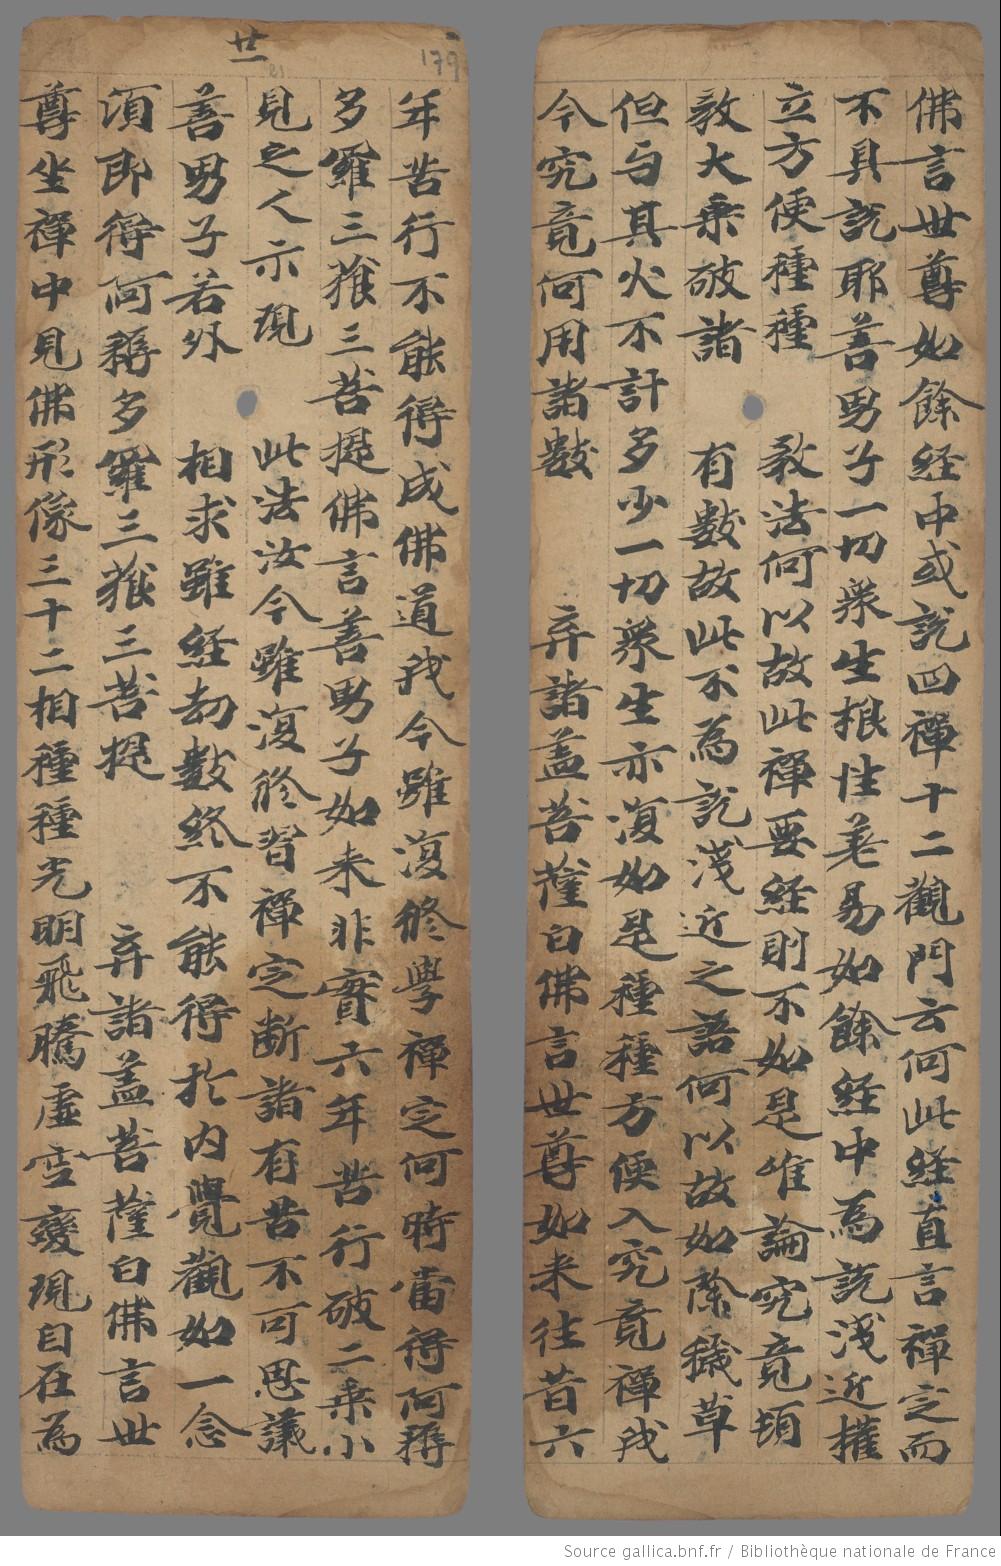 佛言世尊如餘経中或説四禪十二觀門云何此経直言禪定而
不具説耶善男子一切衆生根性差易如餘経中為説淺近權
立方便種種教法何以故此禪要経則不如是唯論究竟頓
教大乘破諸有數故此不為説淺近之語何以故如除穢草
但与其火不計多少一切衆生亦復如是種種方便入究竟禪我
今究竟何用諸數　弃諸盖菩薩白佛言世尊如来往昔六
廿一
21
179
年苦行不能得成佛道我今雖復修學禪定何時當得阿耨
多羅三藐三菩提佛言善男子如来非實六年苦行破二乘小
見之人示現此法汝今雖復修習禪定断諸有苦不可思議
善男子若外相求雖経劫數終不能得扵内覺觀如一念
須即得阿耨多羅三藐三菩提　弃諸盖菩薩白佛言世
尊坐禪中見佛形像三十二相種種光明飛騰虛空變現自在為
Source gallica.bnf.fr / Bibliothèque nationale de France